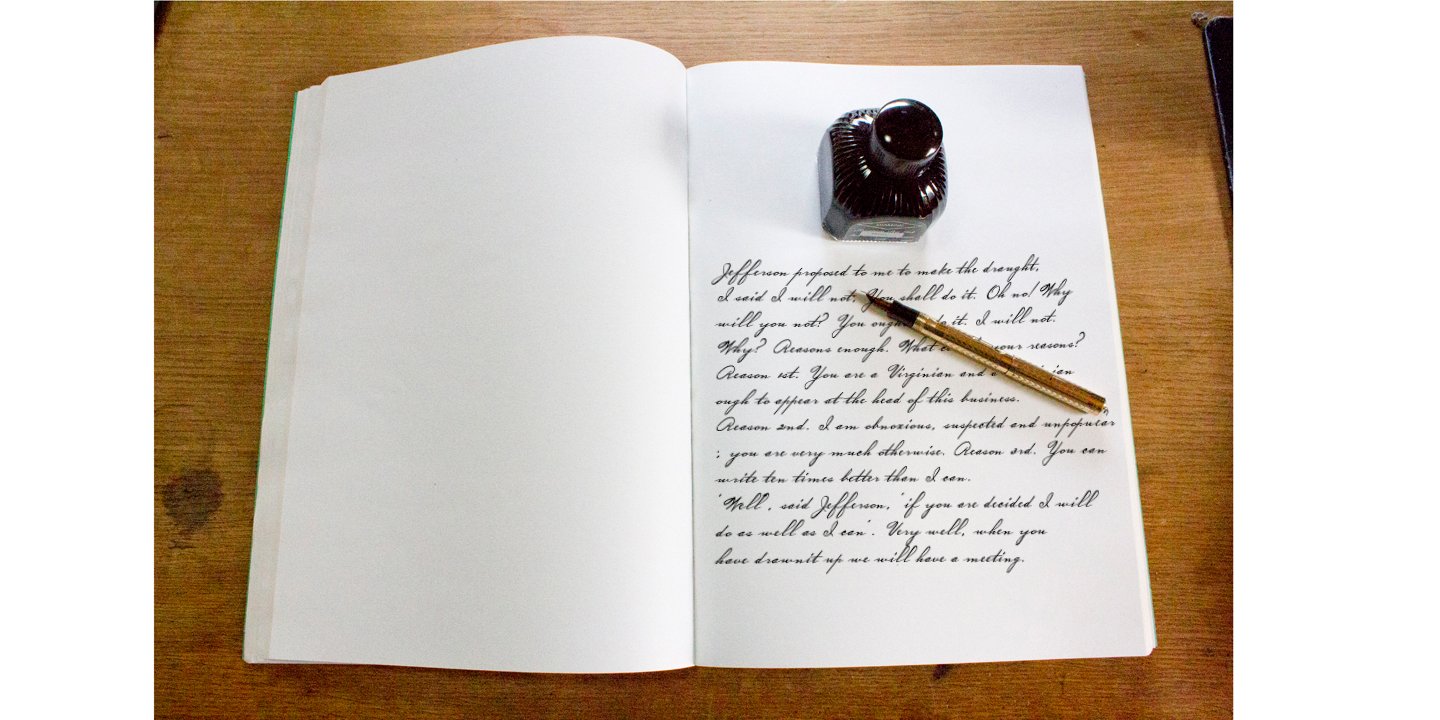 Jefferson proposed to me to make the draught.
I said I will not. You shall do it. Oh no! Why
will you not? You ough do it. I will not.
Why? Reasons enough. What your reasons?
Reason 1st. You are a Virginian and a ian
ough to appear at the head of this business.
Reason 2nd. I am obnoxious, suspected and unpopular
; you are very much otherwise. Reason 3rd. You can
write ten times better than I can.
'Well', said Jefferson,' if you are decided I will
do as well as I can'. Very well, when you
have drawnit up we will have a meeting.